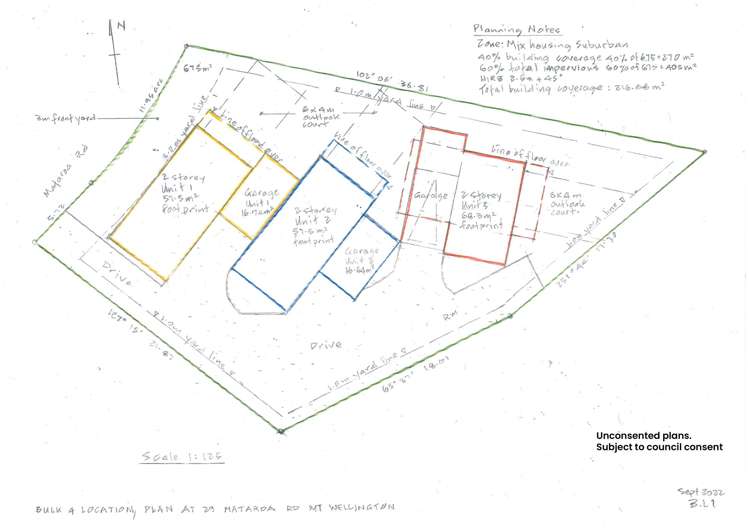 Planning Notes
Zone: Mix housing Suburban
40% building coverage 40% of 675 = 270 m²
60% total impervious 60% of 675 = 405 m²
HIRB 2.5m + 45°
Total building coverage: 216.08 m²
N
675m²
102° 06' 36.81
1.0m yard line
3m front yard
Mataroa Rd
line of floor over
6x4m
outlook
court
line of floor over
line of floor over
2 storey
Unit 1
57.5m²
footprint
Garage
Unit 1
2 storey
Unit 2
57.5m²
footprint
Garage
Unit 2
Garage
2 storey
Unit 3
footprint
6x4m
outlook
court
1.0m yard line
Drive
1.0m yard line
Drive
1.0m yard line
Scale 1:125
Unconsented plans.
Subject to council consent
Sept 2022
B.L1
BULK & LOCATION PLAN AT 29 MATAROA RD MT WELLINGTON